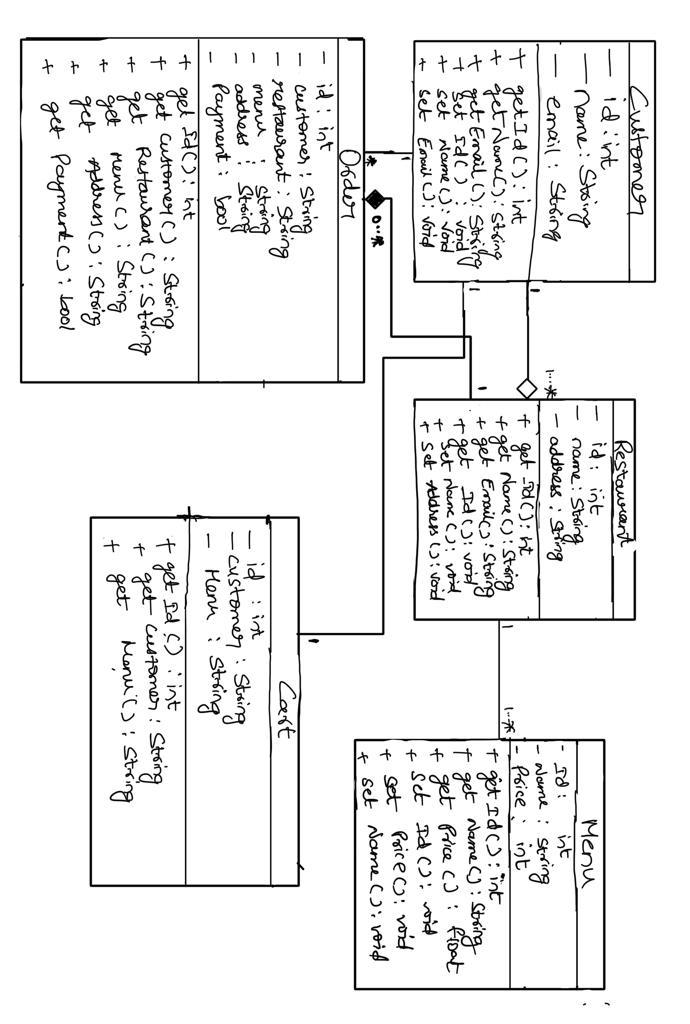 Customer
- id : int
- name : String
- email : String
+ getId() : int
+ getName() : String
+ getEmail() : String
+ set Id() : void
+ set Name() : void
+ set Email() : void
1
1
1
*
Restaurant
- id : int
- name : String
- address : String
+ get Id() : int
+ get Name() : String
+ get Email() : String
+ get Id() : void
+ set Name() : void
+ set Address() : void
1...*
1
1
Menu
- Id : int
- Name : String
- Price : int
+ get Id() : int
+ get Name() : String
+ get Price() : float
+ set Id() : void
+ set Price() : void
+ set Name() : void
1..*
0...*
Order
- id : int
- customer : String
- restaurant : String
- menu : String
- address : String
- Payment : bool
+ get Id() : int
+ get Customer() : String
+ get Restaurant() : String
+ get Menu() : String
+ get Address() : String
+ get Payment() : bool
1
Cart
- id : int
- customer : String
- Menu : String
+ get Id() : int
+ get Customer : String
+ get Menu() : String